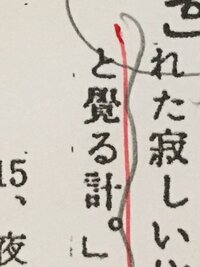 」れた寂しい
と覺る計。」
15、夜